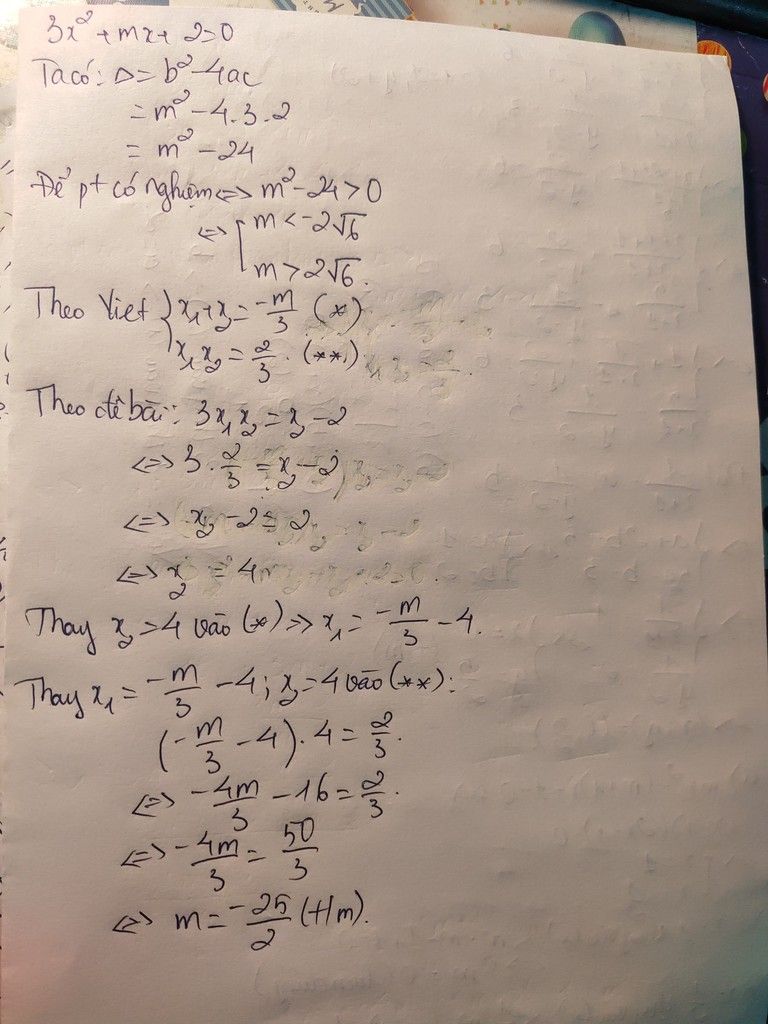 3x² + mx + 2 = 0
Ta có: Δ = b² - 4ac
= m² - 4.3.2
= m² - 24
Để pt có nghiệm <=> m² - 24 > 0
<=> [ m < -2√6
m > 2√6.
Theo Viet { x₁ + x₂ = -m/3 (*)
x₁x₂ = 2/3. (**)
Theo đề bài: 3x₁x₂ = x₂ - 2
<=> 3 . 2/3 = x₂ - 2
<=> x₂ - 2 = 2
<=> x₂ = 4
Thay x₂ = 4 vào (*) => x₁ = -m/3 - 4.
Thay x₁ = -m/3 - 4; x₂ = 4 vào (**):
(-m/3 - 4) . 4 = 2/3.
<=> -4m/3 - 16 = 2/3.
<=> -4m/3 = 50/3
<=> m = -25/2 (t/m).